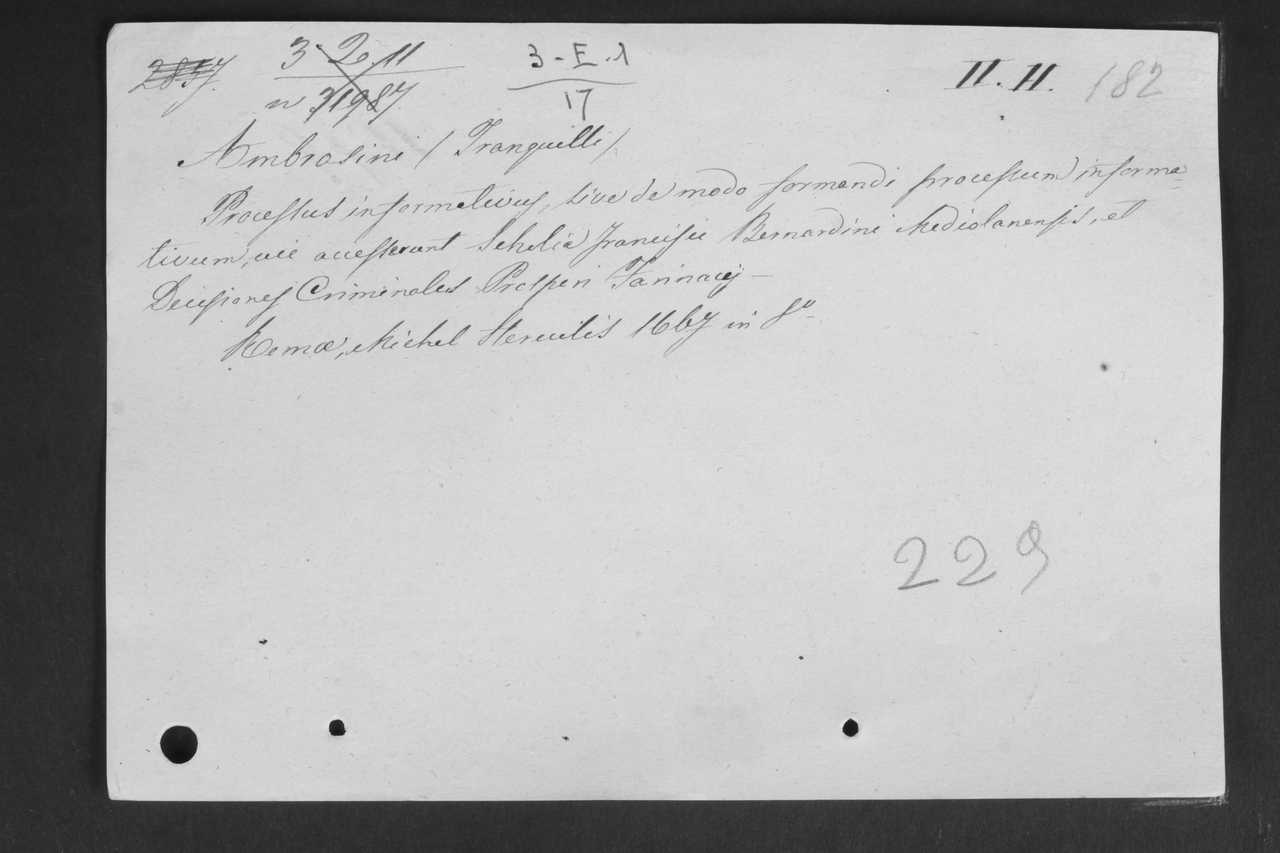 2837. 3-2.11 3-E.1 II. II. 182
n 31987 17
Ambrosini (Tranquilli)
Processus informativus, sive de modo formandi processum informa-
tivum, cui accesserunt Scholia Francisci Bernardini Mediolanensis, et
Decisiones Criminales Prosperi Farinacij —
Romæ, Michel Herculis 1667 in 8º
229